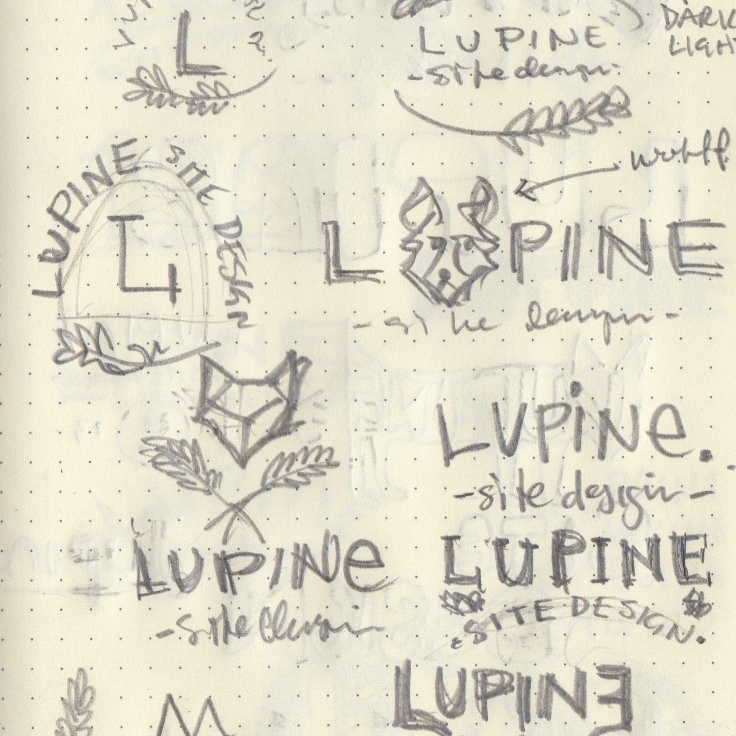 L
LUPINE
-site design-
DARK
LIGHT
LUPINE SITE DESIGN
L
wolf
L PINE
-site design-
LUPiNe.
-site design-
LUPINe
-site design
LUPINE
SITE DESIGN.
LUPINE